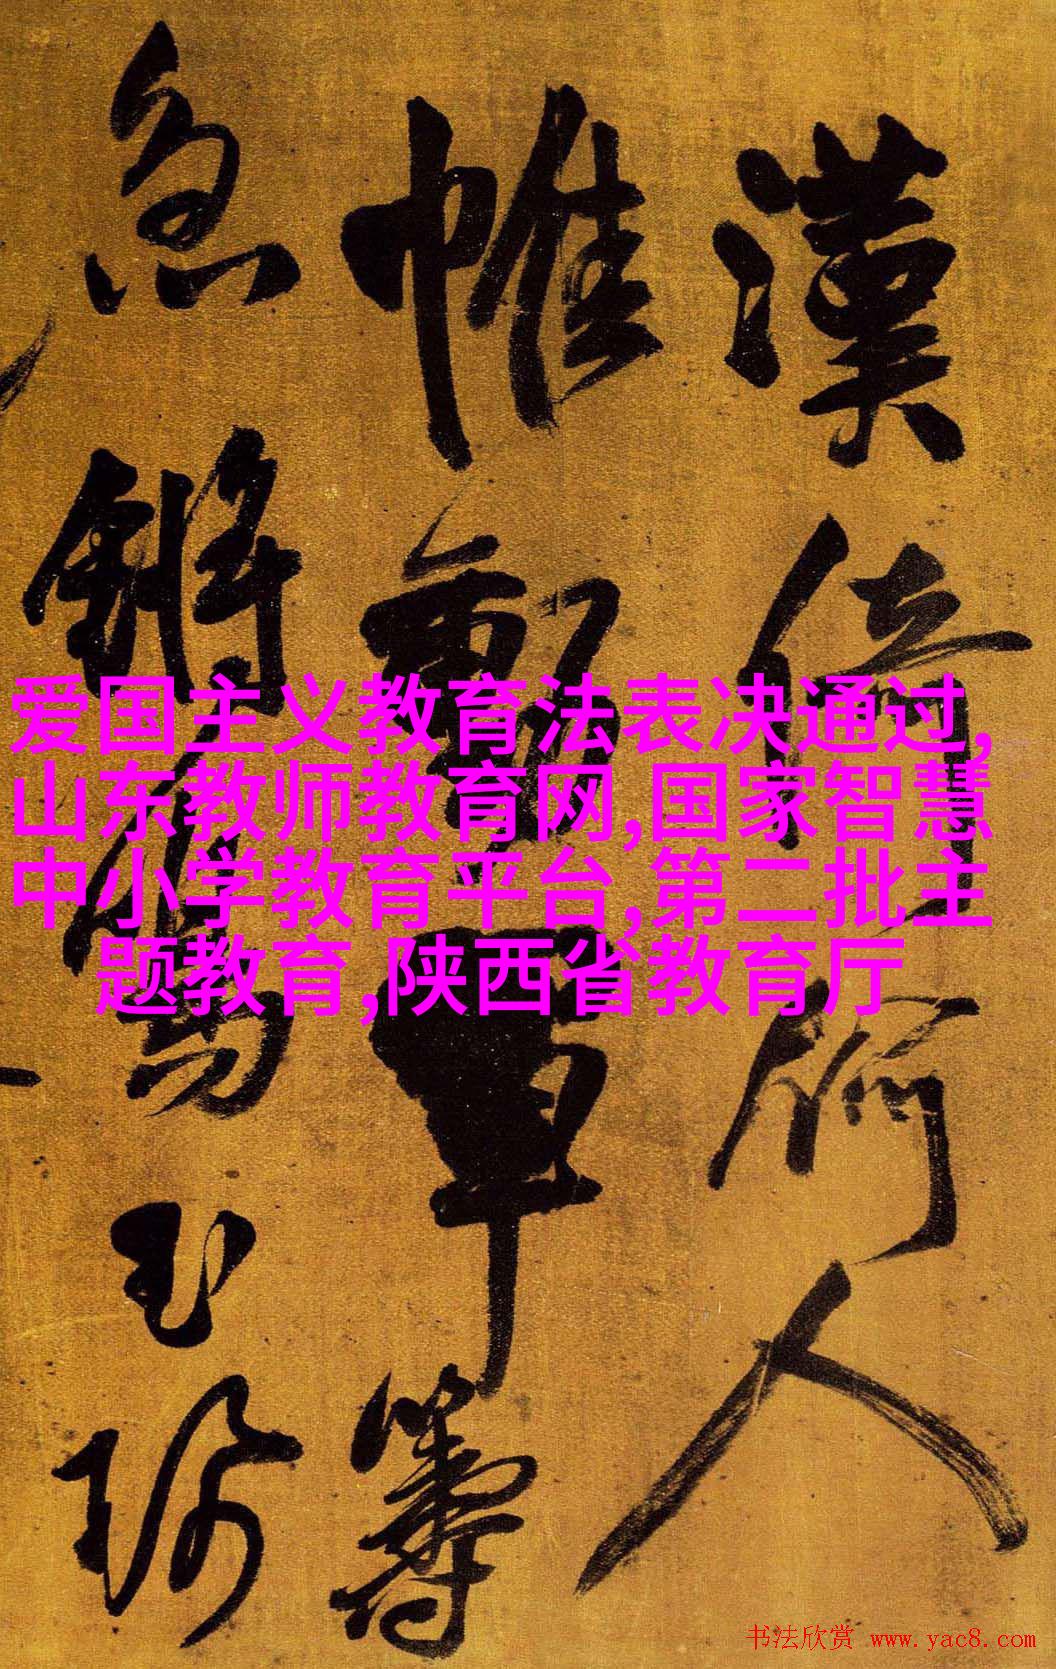 漢人
帷軍籌
急鏘鳴玉
爱国主义教育法表决通过,
山东教师教育网,国家智慧
中小学教育平台,第二批主
题教育,陕西省教育厅
书法欣赏 www.yac8.com